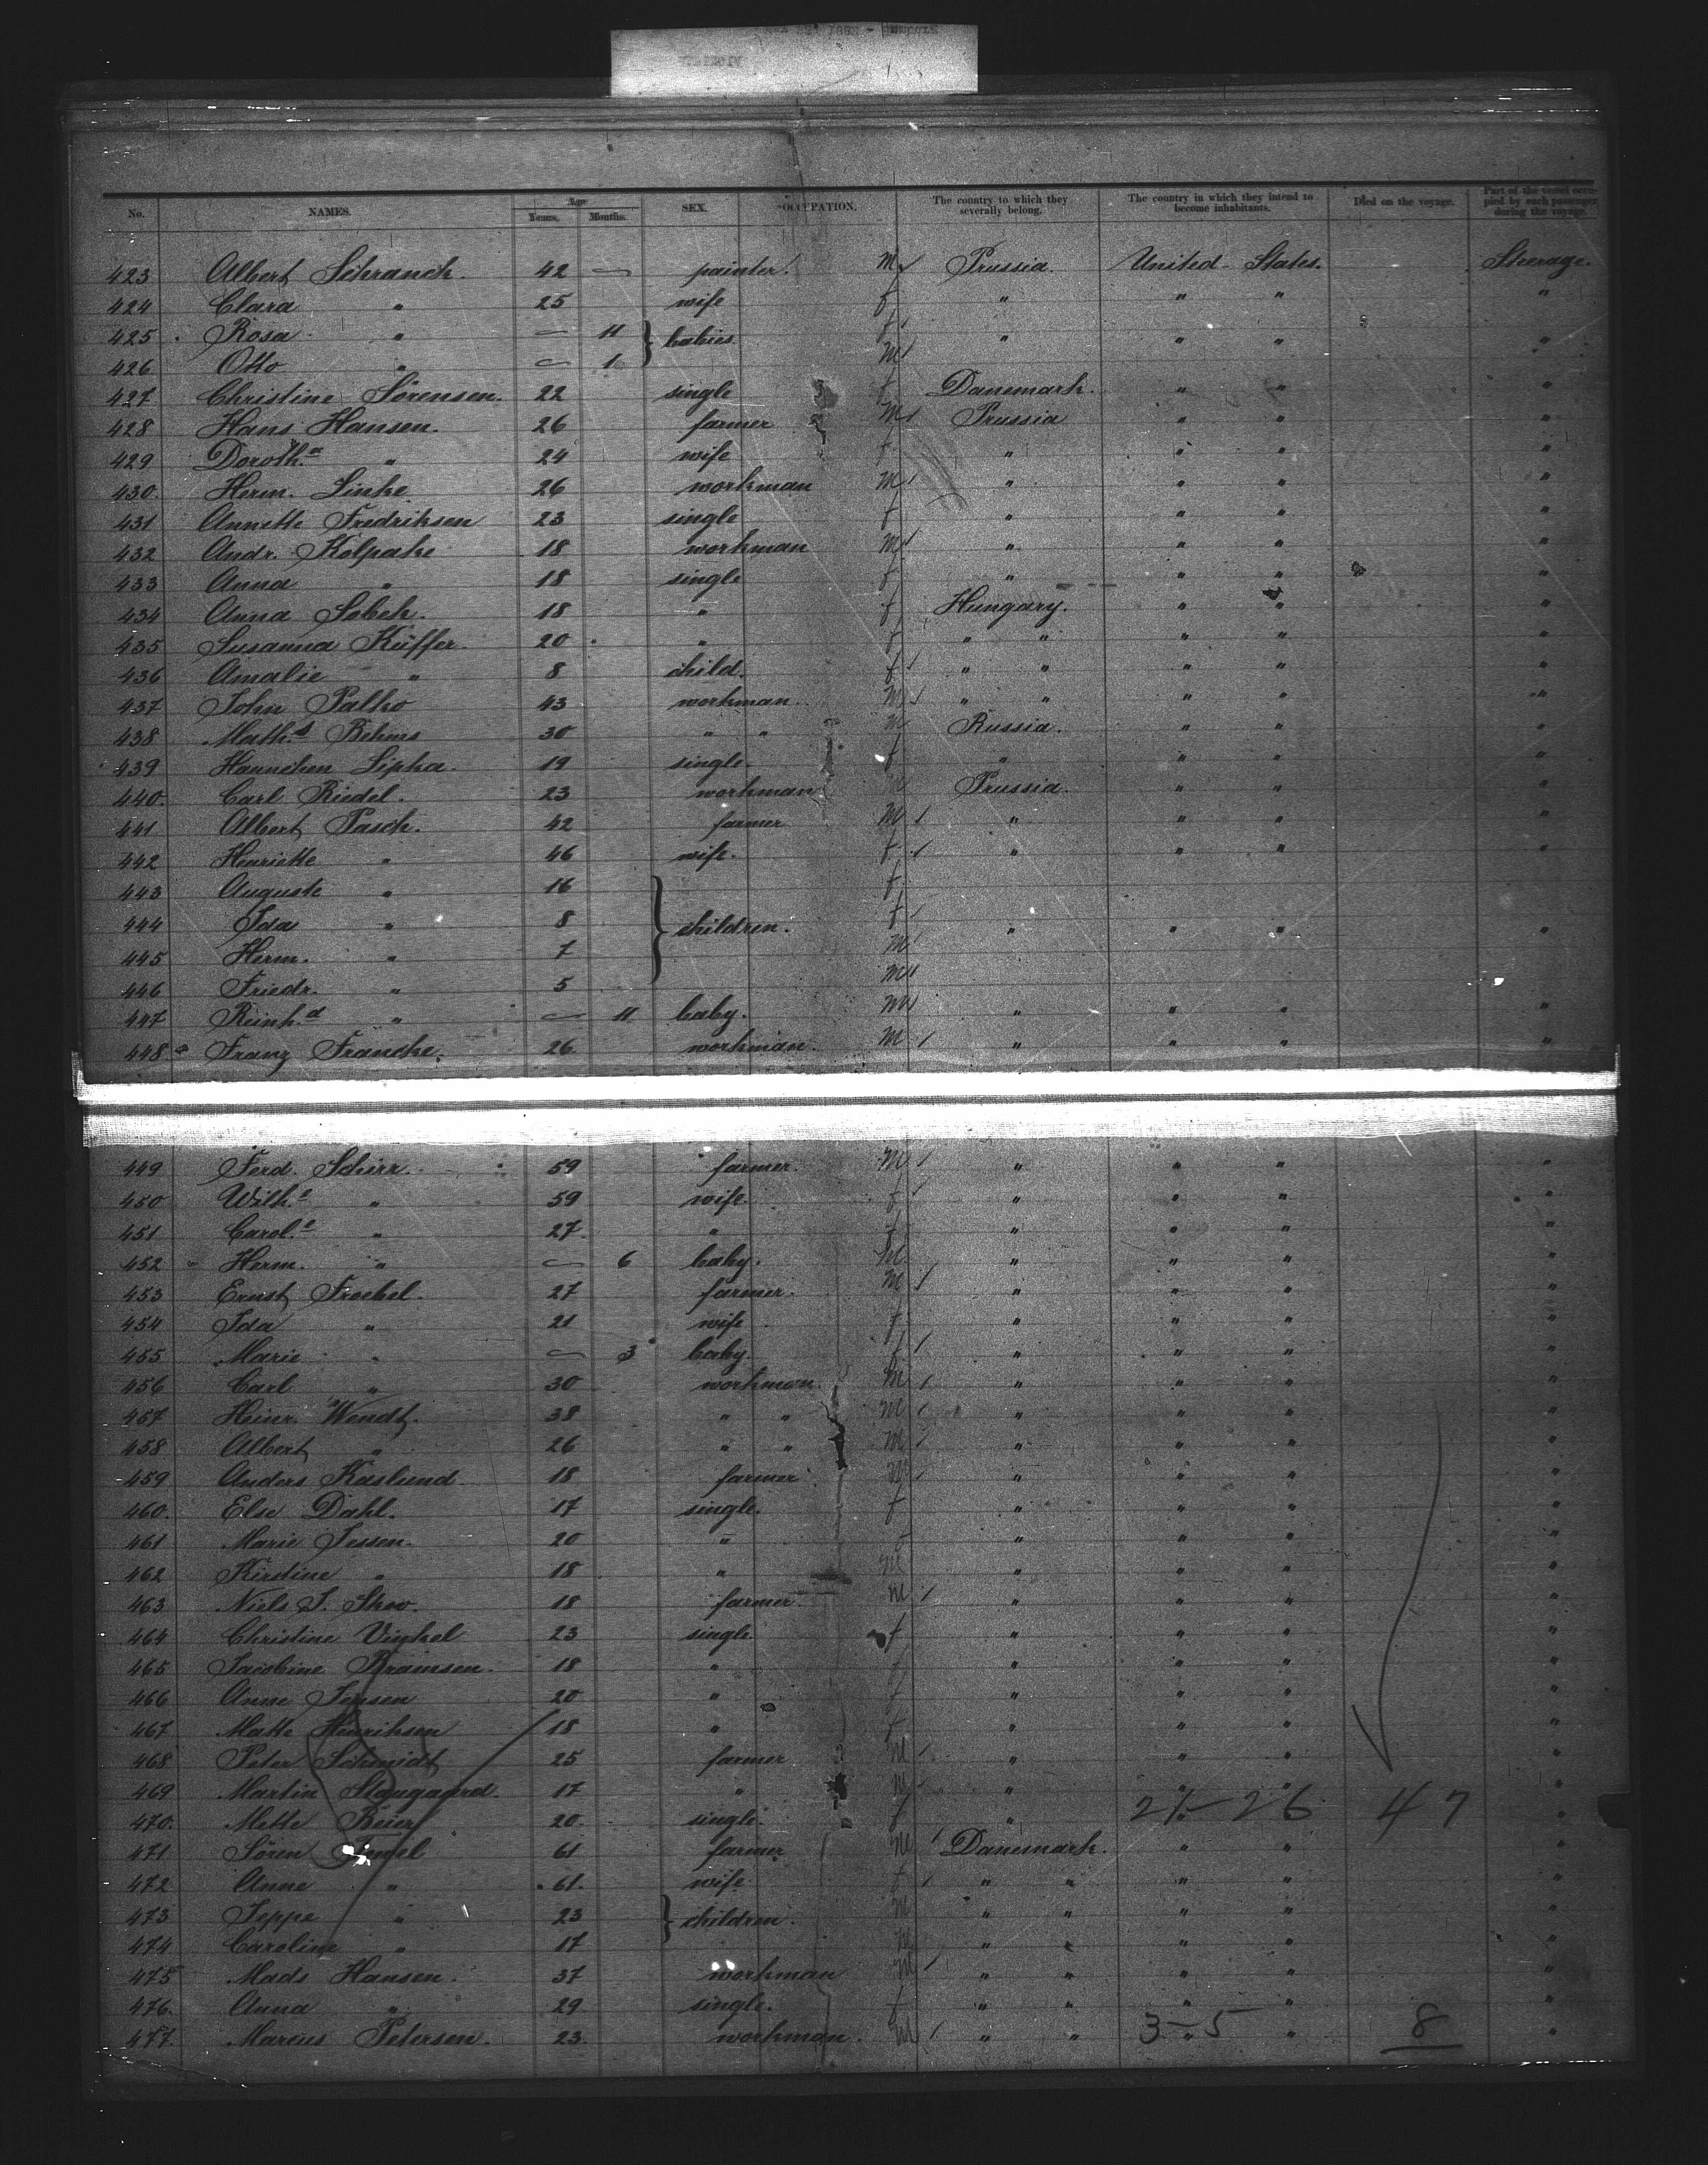 No. NAMES. Age Years. Months. SEX. OCCUPATION. The country to which they severally belong. The country in which they intend to become inhabitants. Died on the voyage. Part of the vessel occupied by each passenger during the voyage.
423 Albert Schranck. 42 — painter. M Prussia. United States. Steerage.
424 Clara " 25 wife f " " " "
425 Rosa " — 11 } babies f " " " "
426 Otto " — 1 M
427 Christine Sörensen. 22 single f Danemark. " " "
428 Hans Hansen. 26 farmer M Prussia " " "
429 Doroth.a " 24 wife f " " " "
430. Herm. Linke 26 workman M " " " "
431 Annette Fredriksen 23 single f " " " "
432 Andr. Kolpake 18 workman M " " " "
433 Anna " 18 single f " " " "
434 Anna Sobek. 18 " f Hungary. " " "
435 Susanna Küffer. 20 " f " " " " "
436 Amalie " 8 child. f " " " " "
437 John Palko 43 workman. M " " " " "
438 Math.s Behms 30 " " M Russia. " " "
439 Hannchen Lipka. 19 single. f " " " "
440. Carl Riedel. 23 workman M Prussia. " " "
441 Albert Pasch. 42 farmer M " " " "
442 Henriette " 46 wife. f " " " "
443 Auguste " 16 f
444 Ida " 8 } children. f " " " "
445 Herm. " 7 M
446 Friedr. " 5 M
447 Reinh.d " — 11 baby. M " " " "
448 Franz Francke. 26 workman. M " " " "
449 Ferd. Schirr. 59 farmer. M " " " "
450 Wilh.e " 59 wife. f " " " "
451 Carol.e " 27 " f " " " "
452 Herm. " — 6 baby. M " " " "
453 Ernst Froebel. 27 farmer. M " " " "
454 Ida " 21 wife f " " " "
455 Marie " — 3 baby. f " " " "
456 Carl " 30 workman. M " " " "
457 Heinr. Wendt. 38 " " M " " " "
458 Albert " 26 " " M " " " "
459 Anders Kaslund 18 farmer M " " " "
460. Else Dahl. 17 single. f " " " "
461 Marie Jessen. 20 " f " " " "
462 Kirstine " 18 " M " " " "
463 Niels J. Skov. 18 farmer. M " " " "
464 Christine Vinkel 23 single. f " " " "
465 Jacobine Bramsen. 18 " f " " " "
466 Anne Jensen 20 " f " " " "
467 Matte Henriksen 18 " f " " " "
468 Peter Schmidt 25 farmer M " " " "
469 Martin 17 " M " " " "
470. Mette Beier 20. single. f " 21-26 47 "
471 Sören 61 farmer M Danemark. " " "
472 Anne " 61. wife f " " " " "
473 Jeppe " 23 } children. M " " " " "
474 Caroline " 17 M " " " " "
475 Mads Hansen. 37 workman M " " " " "
476. Anna " 29 single. f " " " " "
477. Marcus Petersen. 23. workman. M " " 3-5 " 8 "